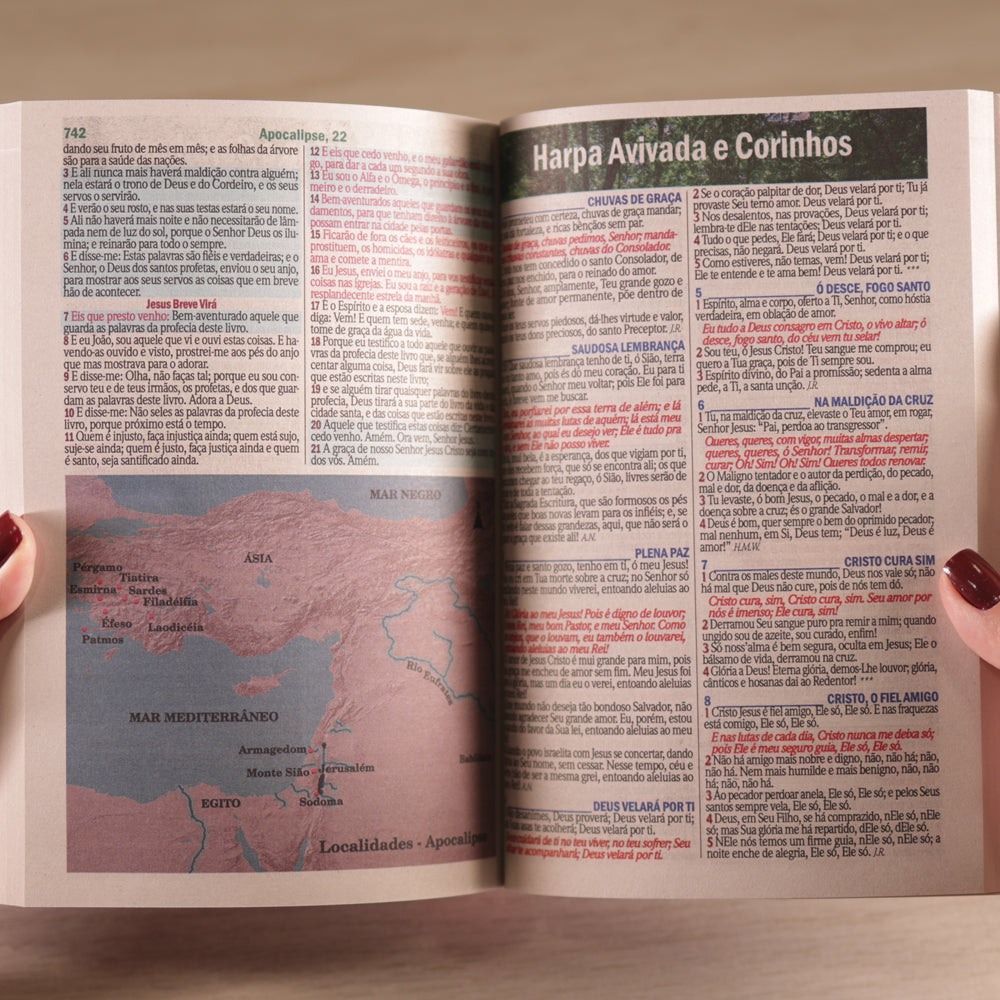 742
Apocalipse, 22
dando seu fruto de mês em mês; e as folhas da árvore
são para a saúde das nações.
3 E ali nunca mais haverá maldição contra alguém;
nela estará o trono de Deus e do Cordeiro, e os seus
servos o servirão.
4 E verão o seu rosto, e nas suas testas estará o seu nome.
5 Ali não haverá mais noite e não necessitarão de lâm-
pada nem de luz do sol, porque o Senhor Deus os ilu-
mina; e reinarão para todo o sempre.
6 E disse-me: Estas palavras são fiéis e verdadeiras; e o
Senhor, o Deus dos santos profetas, enviou o seu anjo,
para mostrar aos seus servos as coisas que em breve
hão de acontecer.
Jesus Breve Virá
7 Eis que presto venho: Bem-aventurado aquele que
guarda as palavras da profecia deste livro.
8 E eu João, sou aquele que vi e ouvi estas coisas. E ha-
vendo-as ouvido e visto, prostrei-me aos pés do anjo
que mas mostrava para o adorar.
9 E disse-me: Olha, não faças tal; porque eu sou con-
servo teu e de teus irmãos, os profetas, e dos que guar-
dam as palavras deste livro. Adora a Deus.
10 E disse-me: Não seles as palavras da profecia deste
livro, porque próximo está o tempo.
11 Quem é injusto, faça injustiça ainda; quem está sujo,
suje-se ainda; quem é justo, faça justiça ainda e quem
é santo, seja santificado ainda.
12 E eis que cedo venho, e o meu galardão
go, para dar a cada um segundo a sua obra.
13 Eu sou o Alfa e o Ômega, o princípio e o fim, o
meiro e o derradeiro.
14 Bem-aventurados aqueles que guardam os seus
damentos, para que tenham direito à árvore da
possam entrar na cidade pelas portas.
15 Ficarão de fora os cães e os feiticeiros, os que se
prostituem, os homicidas, os idólatras e qualquer que
ama e comete a mentira.
16 Eu Jesus, enviei o meu anjo, para vos testificar
coisas nas igrejas. Eu sou a raiz e a geração de Davi
resplandecente estrela da manhã.
17 E o Espírito e a esposa dizem: Vem! E quem ouve
diga: Vem! E quem tem sede, venha; e quem
tome de graça da água da vida.
18 Porque eu testifico a todo aquele que ouvir as pala-
vras da profecia deste livro que, se alguém lhes acres-
centar alguma coisa, Deus fará vir sobre ele as pragas
que estão escritas neste livro;
19 e se alguém tirar quaisquer palavras do livro desta
profecia, Deus tirará a sua parte do livro da vida e da
cidade santa, e das coisas que estão escritas neste livro.
20 Aquele que testifica estas coisas diz: Certamente
cedo venho. Amém. Ora vem, Senhor Jesus.
21 A graça de nosso Senhor Jesus Cristo seja com
dos vós. Amém.
MAR NEGRO
ÁSIA
Pérgamo
Tiatira
Esmirna
Sardes
Filadélfia
Éfeso
Laodicéia
Patmos
Rio Eufrates
MAR MEDITERRÂNEO
Armagedom
Monte Sião
Jerusalém
EGITO
Sodoma
Localidades - Apocalipse
Harpa Avivada e Corinhos
CHUVAS DE GRAÇA
com certeza, chuvas de graça mandar;
fortaleza, e ricas bênçãos sem par.
de graça, chuvas pedimos, Senhor; manda-
constantes, chuvas do Consolador.
nos tem concedido o santo Consolador, de
nos enchido, para o reinado do amor.
Senhor, amplamente, Teu grande gozo e
fonte de amor permanente, põe dentro de
servos piedosos, dá-lhes virtude e valor,
os teus dons preciosos, do santo Preceptor. J.R.
SAUDOSA LEMBRANÇA
saudosa lembrança tenho de ti, ó Sião, terra
tanto amo, pois és do meu coração. Eu para ti
quando o Senhor meu voltar; pois Ele foi para
breve vem me buscar.
porfiarei por essa terra de além; e lá
as muitas lutas de aquém; lá está meu
Senhor, ao qual eu desejo ver; Ele é tudo pra
e sem Ele não posso viver.
bela, é a esperança, dos que vigiam por ti,
recebem força, que só se encontra ali; os que
chegar ao teu regaço, ó Sião, livres serão de
toda a tentação.
Sagrada Escritura, que são formosos os pés
que boas novas levam para os infiéis; e, se
falar dessas grandezas, aqui, que não será o
graça que existe ali! A.N.
PLENA PAZ
paz e santo gozo, tenho em ti, ó meu Jesus!
em Tua morte sobre a cruz; no Senhor só
neste mundo viverei, entoando aleluias ao
Glória ao meu Jesus! Pois é digno de louvor;
Rei, meu bom Pastor, e meu Senhor. Como
anjos, que o louvam, eu também o louvarei,
entoando aleluias ao meu Rei!
amor de Jesus Cristo é mui grande para mim, pois
graça me encheu de amor sem fim. Meu Jesus foi
glória, mas um dia eu o verei, entoando aleluias
Rei!
mundo não deseja tão bondoso Salvador, não
agradecer Seu grande amor. Eu, porém, estou
do favor da Sua lei, entoando aleluias ao meu
o povo israelita com Jesus se concertar, dando
ao Seu nome, sem cessar. Nesse tempo, céu e
de ser a mesma grei, entoando aleluias ao
Rei! A.N.
DEUS VELARÁ POR TI
desanimes, Deus proverá; Deus velará por ti;
asas te acolherá; Deus velará por ti.
cuidará de ti no teu viver, no teu sofrer; Seu
te acompanhará; Deus velará por ti.
2 Se o coração palpitar de dor, Deus velará por ti; Tu já
provaste Seu terno amor. Deus velará por ti.
3 Nos desalentos, nas provações, Deus velará por ti;
lembra-te dEle nas tentações; Deus velará por ti.
4 Tudo o que pedes, Ele fará; Deus velará por ti; e o que
precisas, não negará. Deus velará por ti.
5 Como estiveres, não temas, vem! Deus velará por ti;
Ele te entende e te ama bem! Deus velará por ti. ***
5 Ó DESCE, FOGO SANTO
1 Espírito, alma e corpo, oferto a Ti, Senhor, como hóstia
verdadeira, em oblação de amor.
Eu tudo a Deus consagro em Cristo, o vivo altar; ó
desce, fogo santo, do céu vem tu selar!
2 Sou teu, ó Jesus Cristo! Teu sangue me comprou; eu
quero a Tua graça, pois de Ti sempre sou.
3 Espírito divino, do Pai a promissão; sedenta a alma
pede, a Ti, a santa unção. J.R.
6 NA MALDIÇÃO DA CRUZ
1 Tu, na maldição da cruz, elevaste o Teu amor, em rogar,
Senhor Jesus: "Pai, perdoa ao transgressor".
Queres, queres, com vigor, muitas almas despertar;
queres, queres, ó Senhor! Transformar, remir,
curar; Oh! Sim! Oh! Sim! Queres todos renovar.
2 O Maligno tentador e o autor da perdição, do pecado,
mal e dor, da doença e da aflição.
3 Tu levaste, ó bom Jesus, o pecado, o mal e a dor, e a
doença sobre a cruz; és o grande Salvador!
4 Deus é bom, quer sempre o bem do oprimido pecador;
mal nenhum, em Si, Deus tem; "Deus é luz, Deus é
amor!" H.M.W.
7 CRISTO CURA SIM
1 Contra os males deste mundo, Deus nos vale só; não
há mal que Deus não cure, pois de nós tem dó.
Cristo cura, sim, Cristo cura, sim. Seu amor por
nós é imenso; Ele cura, sim!
2 Derramou Seu sangue puro pra remir a mim; quando
ungido sou de azeite, sou curado, enfim!
3 Só noss'alma é bem segura, oculta em Jesus; Ele o
bálsamo de vida, derramou na cruz.
4 Glória a Deus! Eterna glória, demos-Lhe louvor; glória,
cânticos e hosanas dai ao Redentor! ***
8 CRISTO, O FIEL AMIGO
1 Cristo Jesus é fiel amigo, Ele só, Ele só. E nas fraquezas
está comigo, Ele só, Ele só.
E nas lutas de cada dia, Cristo nunca me deixa só;
pois Ele é meu seguro guia, Ele só, Ele só.
2 Não há amigo mais nobre e digno, não, não há; não,
não há. Nem mais humilde e mais benigno, não, não
há; não, não há.
3 Ao pecador perdoar anela, Ele só, Ele só; e pelos Seus
santos sempre vela, Ele só, Ele só.
4 Deus, em Seu Filho, se há comprazido, nEle só, nEle
só; mas Sua glória me há repartido, dEle só, dEle só.
5 NEle nós temos um firme guia, nEle só, nEle só; a
noite enche de alegria, Ele só, Ele só. J.R.